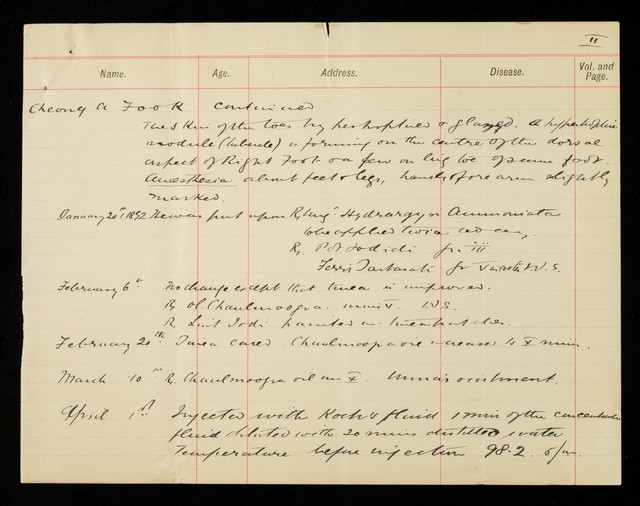 11
Name. Age. Address. Disease. Vol. and Page.
Cheong A Fook continued
The skin of the toes hypertrophied & glazed. A hypertrophied
nodule (tubercle) is forming on the centre of the dorsal
aspect of Right Foot & a few on big toe of same foot.
Anaesthesia about feet & legs, hands & forearm slightly
marked.
January 20th 1892 He was put upon Rx Ung. Hydrargyri Ammoniata
to be applied twice
Rx Pot Iodidi gr iii
Ferri Tartarati gr V
February 6th No change except that tinea is improved.
Rx Ol. Chaulmoogra. min V.
Rx Lint Iodi painted on tinea patches.
February 20th Tinea cured. Chaulmoogra oil increased to X mins.
March 10th Rx Chaulmoogra oil m X. Unna's ointment.
April 1st Injected with Koch's fluid 1 min of the concentrated
fluid diluted with 20 mins distilled water
Temperature before injection 98.2